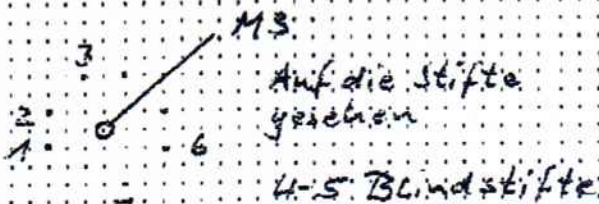 M3
3
Auf die Stifte
gesehen
2
1
6
4-5 Blindstifte